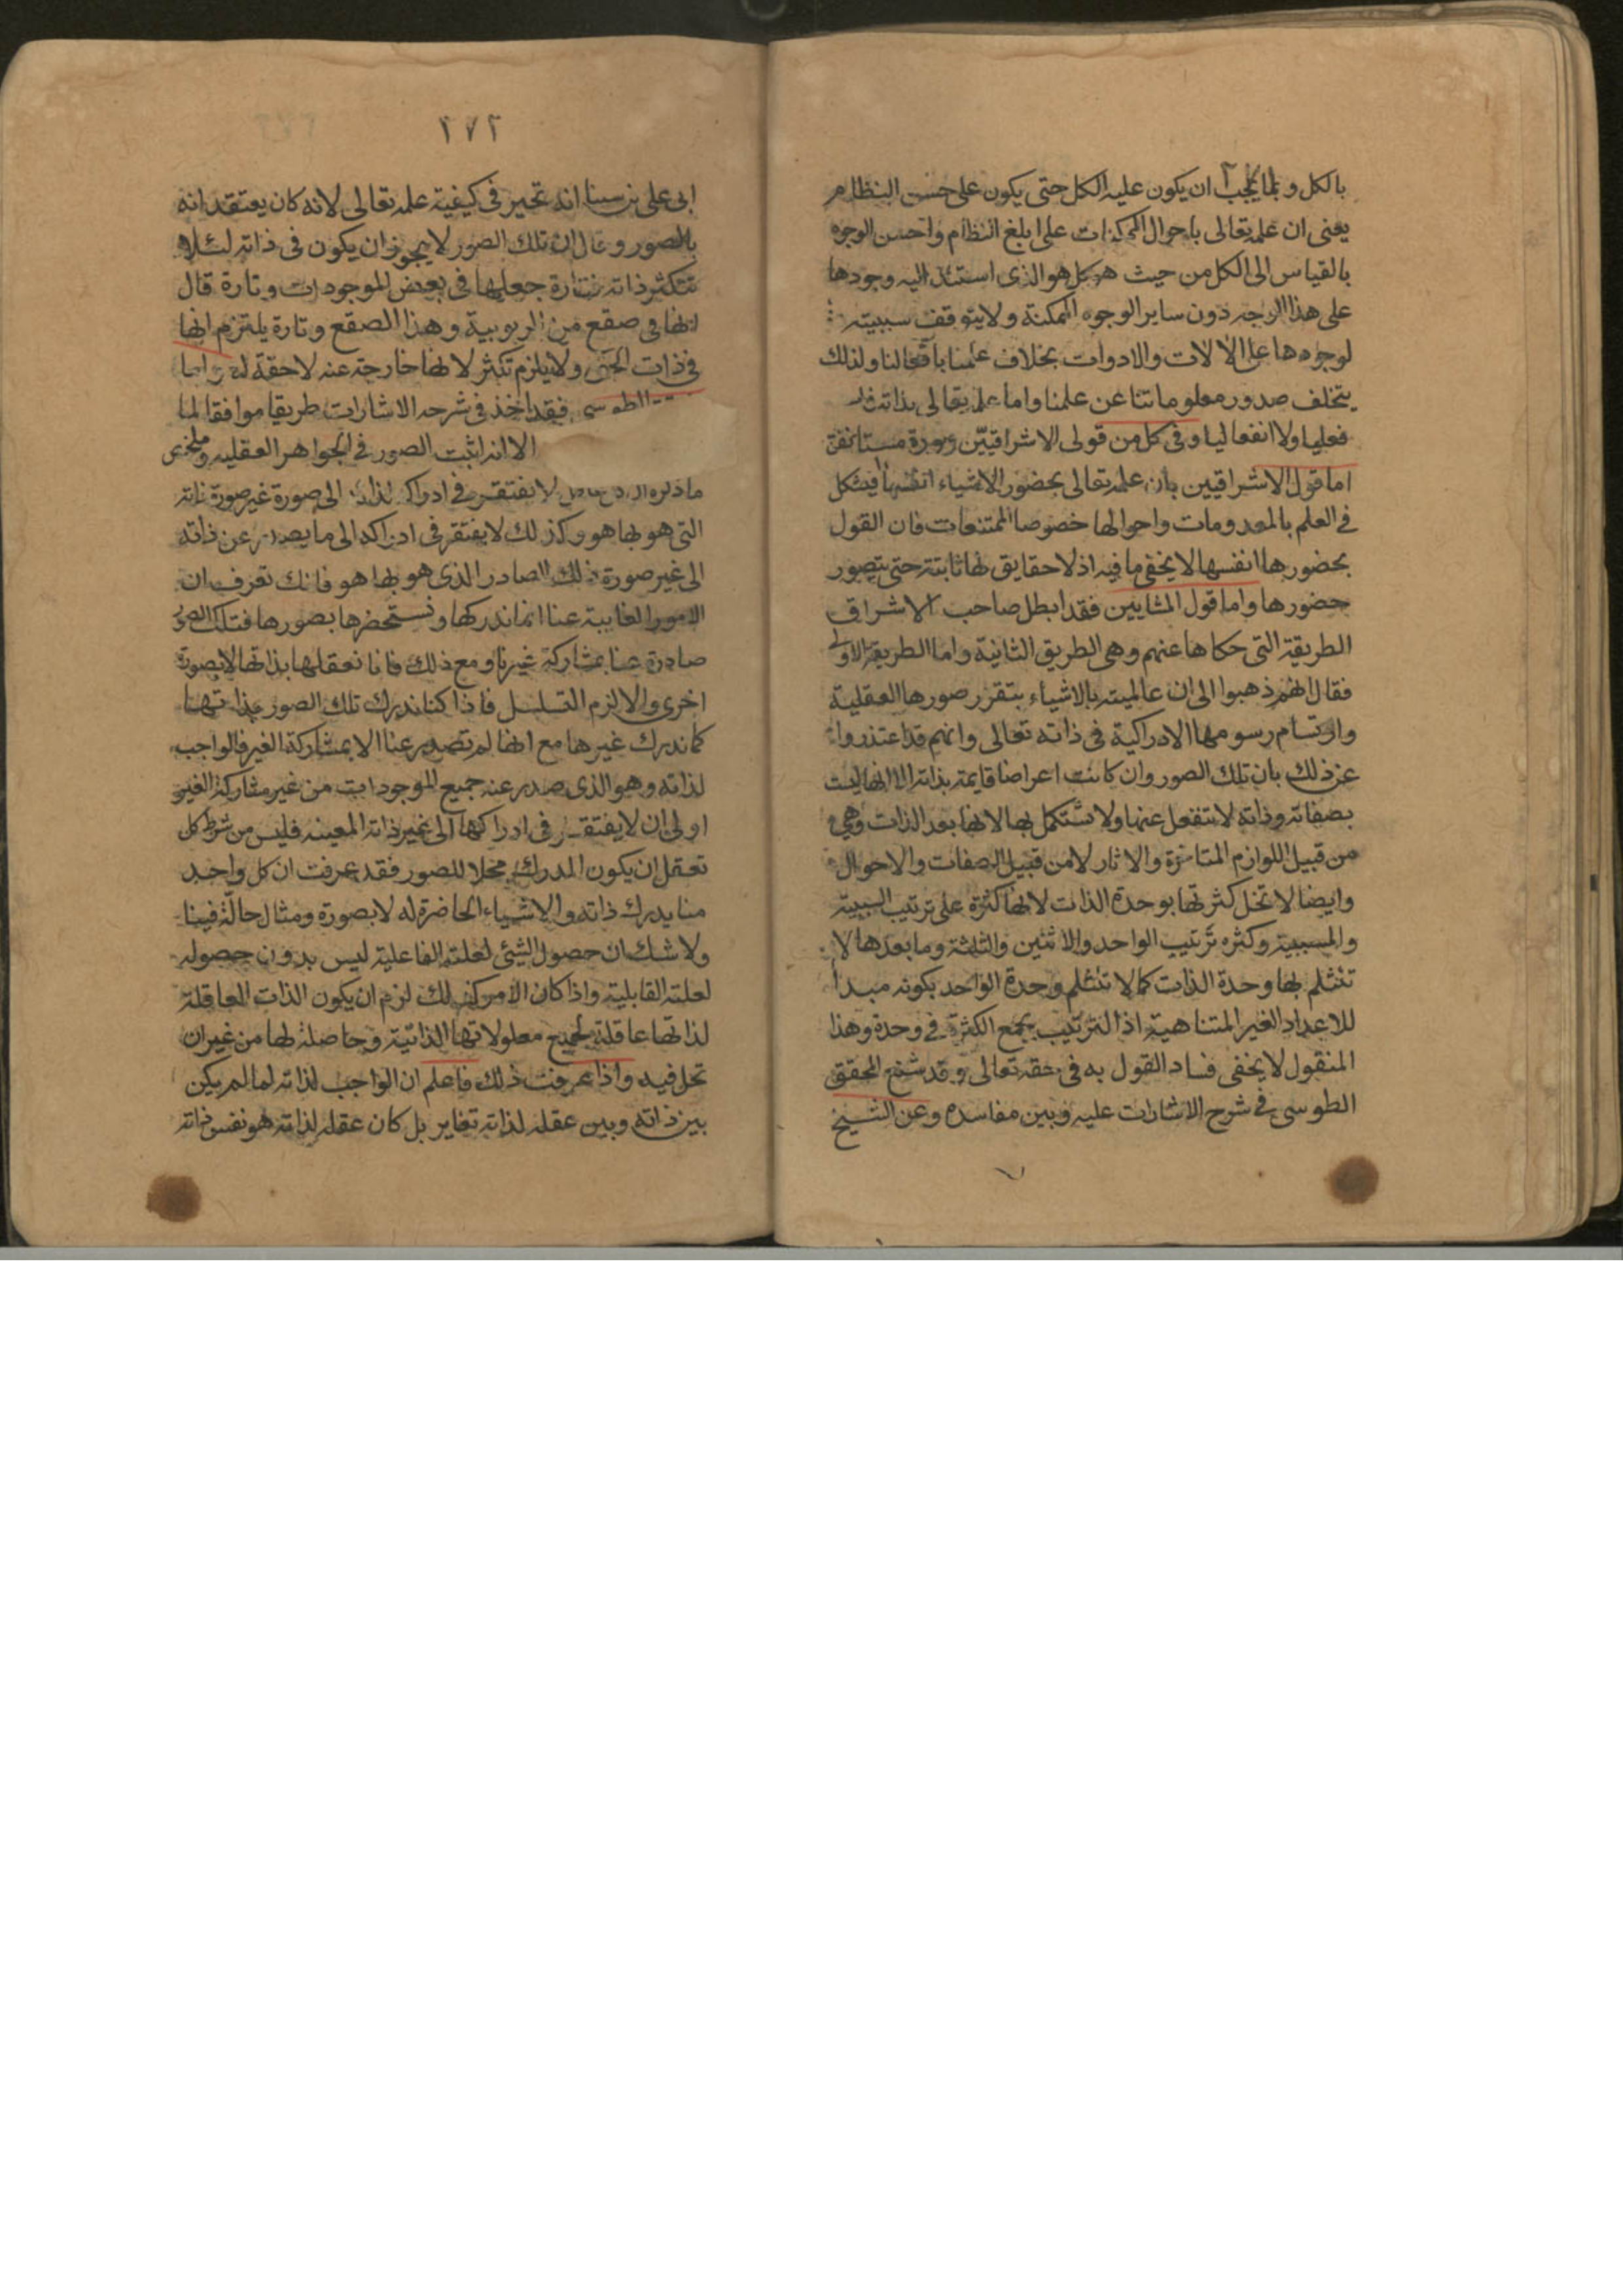 بالكل و بما يجب ان يكون عليه الكل حتى يكون على حسن النظام
يعنى ان علمه تعالى باحوال الممكنات على ابلغ النظام واحسن الوجوه
بالقياس الى الكل من حيث هو كل هو الذى استند اليه وجودها
على هذا الوجه دون ساير الوجوه الممكنة ولا يتوقف سببيته
لوجودها على الالات والادوات بخلاف علمنا بافعالنا ولذلك
يتخلف صدور معلوماتنا عن علمنا واما علمه تعالى بذاته فليس
فعليا ولا انفعاليا وفى كل من قولى الاشراقيين
اما قول الاشراقيين بان علمه تعالى بحضور الاشياء انفسها فيشكل
فى العلم بالمعدومات واحوالها خصوصا الممتنعات فان القول
بحضورها انفسها لا يخفى ما فيه اذ لا حقايق لها ثابتة حتى يتصور
حضورها واما قول المشايين فقد ابطل صاحب الاشراق
الطريقة التى حكاها عنهم وهى الطريق الثانية واما الطريقة الاولى
فقال انهم ذهبوا الى ان عالميته بالاشياء بتقرر صورها العقلية
وارتسام رسومها الادراكية فى ذاته تعالى وانهم قد اعتذروا
عن ذلك بان تلك الصور وان كانت اعراضا قايمة بذاته الا انها ليست
بصفاته وذاته لا تنفعل عنها ولا تستكمل بها لانها بعد الذات وهى
من قبيل اللوازم المتاخرة والاثار لا من قبيل الصفات والاحوال
وايضا لا تخل كثرتها بوحدة الذات لانها كثرة على ترتيب السببية
والمسببية وكثره ترتيب الواحد والاثنين والثلثة وما بعدها لا
تنثلم بها وحدة الذات كما لا تنثلم وحدة الواحد بكونه مبدأ
للاعداد الغير المتناهية اذ الترتيب يجمع الكثرة فى وحدة وهذا
المنقول لا يخفى فساد القول به فى حقه تعالى وقد شنع المحقق
الطوسى فى شرح الاشارات عليه وبين مفاسده وعن الشيخ
٢٧٢
ابى على بن سينا انه تحير فى كيفية علمه تعالى لانه كان يعتقد انه
بالصور وقال ان تلك الصور لا يجوز ان يكون فى ذاته لئلا
تتكثر ذاته فتارة جعلها فى بعض الموجودات وتارة قال
انها فى صقع من الربوبية وهذا الصقع وتارة يلتزم انها
فى ذات الحق ولا يلزم تكثر لانها خارجة عنه لاحقة له واما
الطوسى فقد اخذ فى شرحه الاشارات طريقا موافقا لما
الا انه اثبت الصور فى الجواهر العقليه وملخص
ما ذكره لا يفتقر فى ادراك لذاته الى صورة غير صورة ذاته
التى هو بها هو وكذلك لا يفتقر فى ادراكه الى ما يصدر عن ذاته
الى غير صورة ذلك الصادر الذى هو بها هو فانك تعرف ان
الامور الغايبة عنا انما ندركها ونستحضرها بصورها فتلك الصور
صادرة عنا بمشاركة غيرنا ومع ذلك فانا نعقلها بذاتها لا بصورة
اخرى والا لزم التسلسل فاذا كنا ندرك تلك الصور بذاتها
كما ندرك غيرها مع انها لم تصدر عنا الا بمشاركة الغير فالواجب
لذاته وهو الذى صدر عنه جميع الموجودات من غير مشاركة الغير
اولى ان لا يفتقر فى ادراكها الى غير ذاته المعينه فليس من شرط كل
تعقل ان يكون المدرك محلا للصور فقد عرفت ان كل واحد
منا يدرك ذاته والاشياء الحاضرة له لا بصورة ومثال حالة فينا
ولا شك ان حصول الشئ لعلته الفاعلية ليس بدون حصوله
لعلته القابلية واذا كان الامر كذلك لزم ان يكون الذات العاقلة
لذاتها عاقلة لجميع معلولاتها الذاتية وحاصلة لها من غير ان
تحل فيه واذا عرفت ذلك فاعلم ان الواجب لذاته لما لم يكن
بين ذاته وبين عقله لذاته تغاير بل كان عقله لذاته هو نفس ذاته